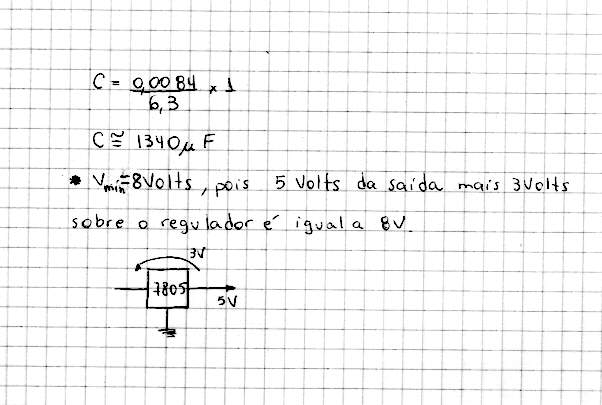 C = 0,0084 × 1
6,3
C ≅ 1340μF
• Vmin=8Volts, pois 5 Volts da saída mais 3Volts
sobre o regulador é igual a 8V.
3V
7805
5V